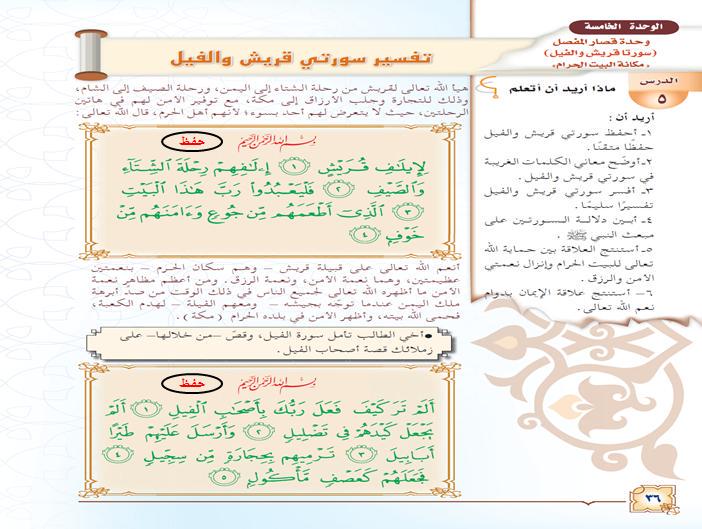 الوحدة الخامسة
وحدة قصار المفصل
(سورتا قريش والفيل)
«مكانة البيت الحرام»
الدرس
٥
ماذا أريد أن أتعلم
أريد أن :
١- أحفظ سورتي قريش والفيل
حفظًا متقنًا.
٢- أوضح معاني الكلمات الغريبة
في سورتي قريش والفيل.
٣- أفسر سورتي قريش والفيل
تفسيرًا سليمًا.
٤- أبين دلالة السورتين على
مبعث النبي ﷺ .
٥- أستنتج العلاقة بين حماية الله
تعالى للبيت الحرام وإنزال نعمتي
الأمن والرزق.
٦- أستنتج علاقة الإيمان بدوام
نعم الله تعالى.
تفسير سورتي قريش والفيل
هيأ الله تعالى لقريش من رحلة الشتاء إلى اليمن، ورحلة الصيف إلى الشام،
وذلك للتجارة وجلب الأرزاق إلى مكة، مع توفير الأمن لهم في هاتين
الرحلتين، حيث لا يتعرض لهم أحد بسوء؛ لأنهم أهل الحرم، قال الله تعالى:
بِسْمِ اللَّهِ الرَّحْمَٰنِ الرَّحِيمِ
حفظ
لِإِيلَٰفِ قُرَيْشٍ ١ إِۦلَٰفِهِمْ رِحْلَةَ ٱلشِّتَآءِ
وَٱلصَّيْفِ ٢ فَلْيَعْبُدُوا۟ رَبَّ هَٰذَا ٱلْبَيْتِ
٣ ٱلَّذِىٓ أَطْعَمَهُم مِّن جُوعٍ وَءَامَنَهُم مِّنْ
خَوْفٍۭ ٤
أنعم الله تعالى على قبيلة قريش – وهم سكان الحرم – بنعمتين
عظيمتين، وهما نعمة الأمن، ونعمة الرزق. ومن أعظم مظاهر نعمة
الأمن ما أظهره الله تعالى لجميع الناس في ذلك الوقت من صد أبرهة
ملك اليمن عندما توجّه بجيشه – ومعهم الفيلة – لهدم الكعبة،
فحمى الله بيته، وأظهر الأمن في بلده الحرام (مكة).
●أخي الطالب تأمل سورة الفيل، وقصّ –من خلالها– على
زملائك قصة أصحاب الفيل.
بِسْمِ اللَّهِ الرَّحْمَٰنِ الرَّحِيمِ
حفظ
أَلَمْ تَرَ كَيْفَ فَعَلَ رَبُّكَ بِأَصْحَٰبِ ٱلْفِيلِ ١ أَلَمْ
يَجْعَلْ كَيْدَهُمْ فِى تَضْلِيلٍ ٢ وَأَرْسَلَ عَلَيْهِمْ طَيْرًا
أَبَابِيلَ ٣ تَرْمِيهِم بِحِجَارَةٍ مِّن سِجِّيلٍ ٤
فَجَعَلَهُمْ كَعَصْفٍ مَّأْكُولٍۭ ٥
٣٦